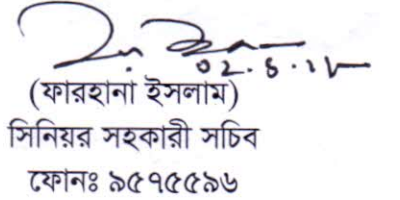 (ফারহানা ইসলাম)
সিনিয়র সহকারী সচিব
ফোনঃ ৯৫৭৫৫৯৬